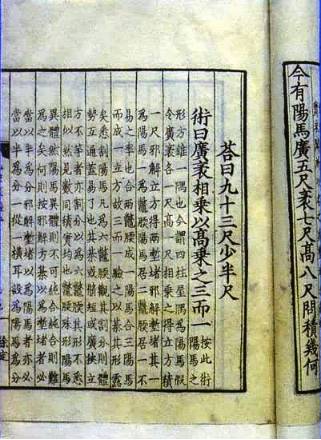 今有陽馬廣五尺袤七尺髙八尺問積幾何
荅曰九十三尺少半尺
術曰廣袤相乗以髙乗之三而一
按此術
陽馬之
形方錐一隅也今謂四柱屋隅為陽馬假
令廣袤各一尺髙一尺相乗之得立方積
一尺邪解立方得兩壍堵邪解壍堵其一
為陽馬一為鼈腝陽馬居二鼈腝居一不
易之率也合兩鼈腝成一陽馬合三陽馬
而成一立方故三而一驗之以棊其形露
矣悉割陽馬凡為六鼈腝觀其割分則體
勢互通盖易了也其棊或脩短或廣狹立
方不等者亦割分以為六鼈腝其形不悉
相似然見數同積實均也鼈腝殊形陽馬
異體然陽馬異體則不可純合不純合則難
為之矣何則按邪解方棊以為壍堵者必
當以半為分邪解壍堵以為陽馬者亦必
當以半為分一從一橫耳設為陽馬為分